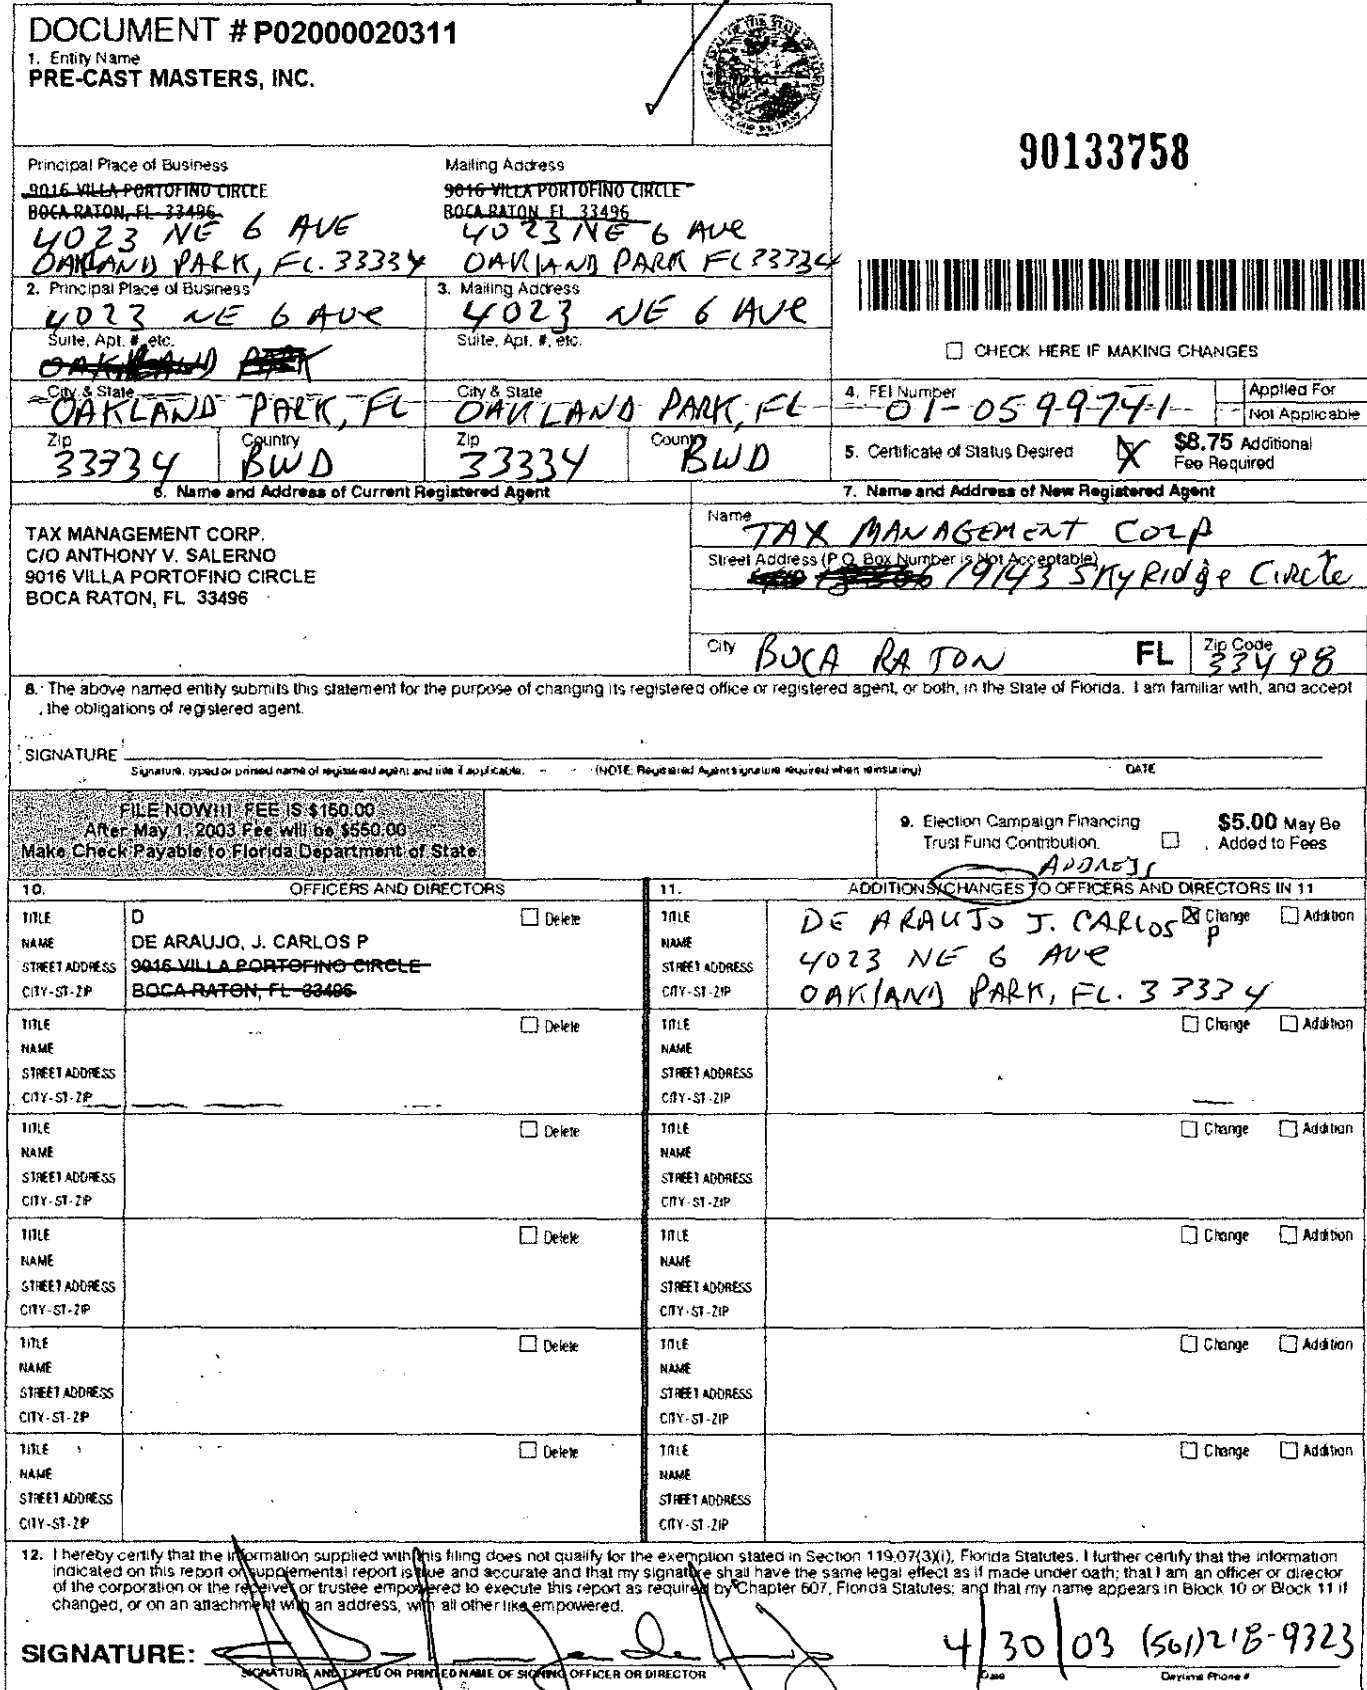 DOCUMENT # P02000020311
1. Entity Name
PRE-CAST MASTERS, INC.
90133758
Principal Place of Business
9016 VILLA PORTOFINO CIRCLE
BOCA RATON, FL 33496
4023 NE 6 AVE
OAKLAND PARK, FL. 33334
Mailing Address
9016 VILLA PORTOFINO CIRCLE
BOCA RATON, FL 33496
4023 NE 6 AVE
OAKLAND PARK FL 33334
2. Principal Place of Business
4023 NE 6 AVE
Suite, Apt. #, etc.
OAKLAND PARK
City & State
OAKLAND PARK, FL
Zip
33334
Country
BWD
3. Mailing Address
4023 NE 6 AVE
Suite, Apt. #, etc.
City & State
OAKLAND PARK, FL
Zip
33334
Country
BWD
CHECK HERE IF MAKING CHANGES
4. FEI Number
01-0599741
Applied For
Not Applicable
5. Certificate of Status Desired
$8.75 Additional
Fee Required
6. Name and Address of Current Registered Agent
TAX MANAGEMENT CORP.
C/O ANTHONY V. SALERNO
9016 VILLA PORTOFINO CIRCLE
BOCA RATON, FL 33496
7. Name and Address of New Registered Agent
Name
TAX MANAGEMENT CORP
Street Address (P.O. Box Number is Not Acceptable)
19143 SKYRidge CIRCle
City
BOCA RATON
FL
Zip Code
33498
8. The above named entity submits this statement for the purpose of changing its registered office or registered agent, or both, in the State of Florida. I am familiar with, and accept
the obligations of registered agent.
SIGNATURE
Signature, typed or printed name of registered agent and title if applicable.
(NOTE: Registered Agent signature required when reinstating)
DATE
FILE NOW!!! FEE IS $150.00
After May 1, 2003 Fee will be $550.00
Make Check Payable to Florida Department of State
9. Election Campaign Financing
Trust Fund Contribution.
$5.00 May Be
Added to Fees
ADDRESS
10.
OFFICERS AND DIRECTORS
11.
ADDITIONS/CHANGES TO OFFICERS AND DIRECTORS IN 11
TITLE
D
Delete
NAME
DE ARAUJO, J. CARLOS P
STREET ADDRESS
9016 VILLA PORTOFINO CIRCLE
CITY-ST-ZIP
BOCA RATON, FL 33496
TITLE
NAME
STREET ADDRESS
CITY-ST-ZIP
DE ARAUJO J. CARLOS P
4023 NE 6 AVE
OAKLAND PARK, FL. 33334
Change
Addition
TITLE
NAME
STREET ADDRESS
CITY-ST-ZIP
Delete
TITLE
NAME
STREET ADDRESS
CITY-ST-ZIP
Change
Addition
TITLE
NAME
STREET ADDRESS
CITY-ST-ZIP
Delete
TITLE
NAME
STREET ADDRESS
CITY-ST-ZIP
Change
Addition
TITLE
NAME
STREET ADDRESS
CITY-ST-ZIP
Delete
TITLE
NAME
STREET ADDRESS
CITY-ST-ZIP
Change
Addition
TITLE
NAME
STREET ADDRESS
CITY-ST-ZIP
Delete
TITLE
NAME
STREET ADDRESS
CITY-ST-ZIP
Change
Addition
TITLE
NAME
STREET ADDRESS
CITY-ST-ZIP
Delete
TITLE
NAME
STREET ADDRESS
CITY-ST-ZIP
Change
Addition
12. I hereby certify that the information supplied with this filing does not qualify for the exemption stated in Section 119.07(3)(i), Florida Statutes. I further certify that the information
indicated on this report or supplemental report is true and accurate and that my signature shall have the same legal effect as if made under oath; that I am an officer or director
of the corporation or the receiver or trustee empowered to execute this report as required by Chapter 607, Florida Statutes; and that my name appears in Block 10 or Block 11 if
changed, or on an attachment with an address, with all other like empowered.
SIGNATURE:
SIGNATURE AND TYPED OR PRINTED NAME OF SIGNING OFFICER OR DIRECTOR
4/30/03
Date
(561)218-9323
Daytime Phone #